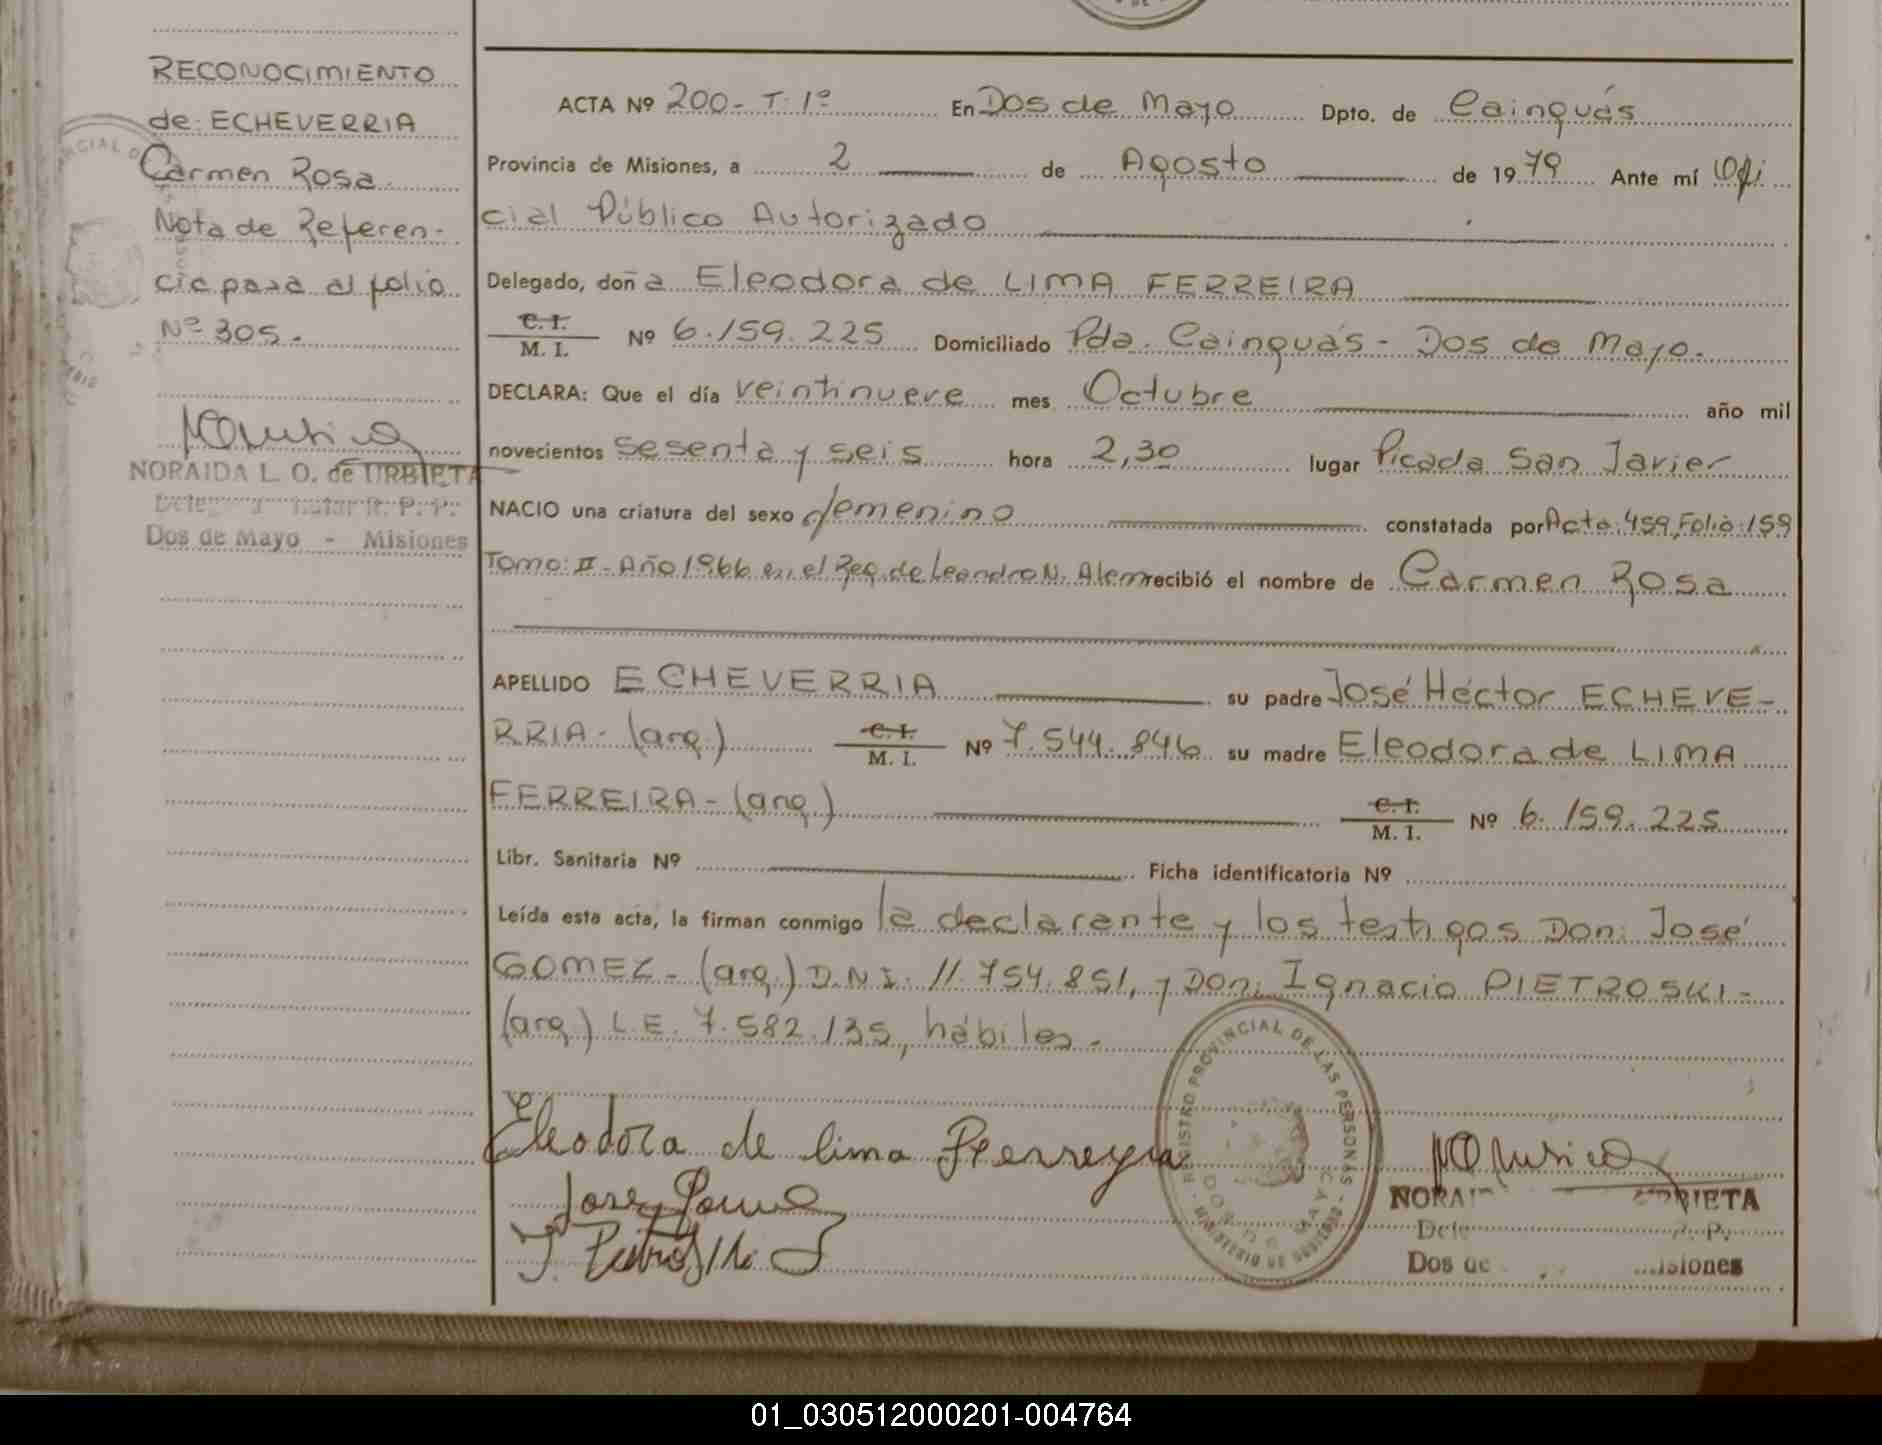 RECONOCIMIENTO
de ECHEVERRIA
Carmen Rosa.
Nota de Referen-
cia pasa al folio
Nº 305.-
NORAIDA L. O. de URBIETA
Titular R. P. P.
Dos de Mayo - Misiones
ACTA Nº 200- T: 1º En Dos de Mayo Dpto. de Cainguás
Provincia de Misiones, a 2 de Agosto de 1979 Ante mí Ofi
cial Público Autorizado
Delegado, doña Eleodora de LIMA FERREIRA
C. I.
M. I. Nº 6.159.225 Domiciliado Pda. Cainguás - Dos de Mayo.
DECLARA: Que el día veintinueve mes Octubre año mil
novecientos sesenta y seis hora 2,30 lugar Picada San Javier
NACIO una criatura del sexo femenino constatada por Acta: 459, Folio: 159
Tomo: II - Año 1966 en el Reg. de Leandro N. Alem recibió el nombre de Carmen Rosa
APELLIDO ECHEVERRIA su padre José Héctor ECHEVE-
RRIA - (arg.) C. I.
M. I. Nº 7.544.846 su madre Eleodora de LIMA
FERREIRA - (arg.) C. I.
M. I. Nº 6.159.225
Libr. Sanitaria Nº Ficha identificatoria Nº
Leída esta acta, la firman conmigo la declarante y los testigos Don: José
GOMEZ - (arg.) D.N.I. 11.754.851, y Don: Ignacio PIETROSKI -
(arg.) L.E. 7.582.135, hábiles.-
Eleodora de lima Fferreyra
REGISTRO PROVINCIAL DE LAS PERSONAS
NORAI URBIETA
Dele P. P.
Dos de isiones
01_030512000201-004764